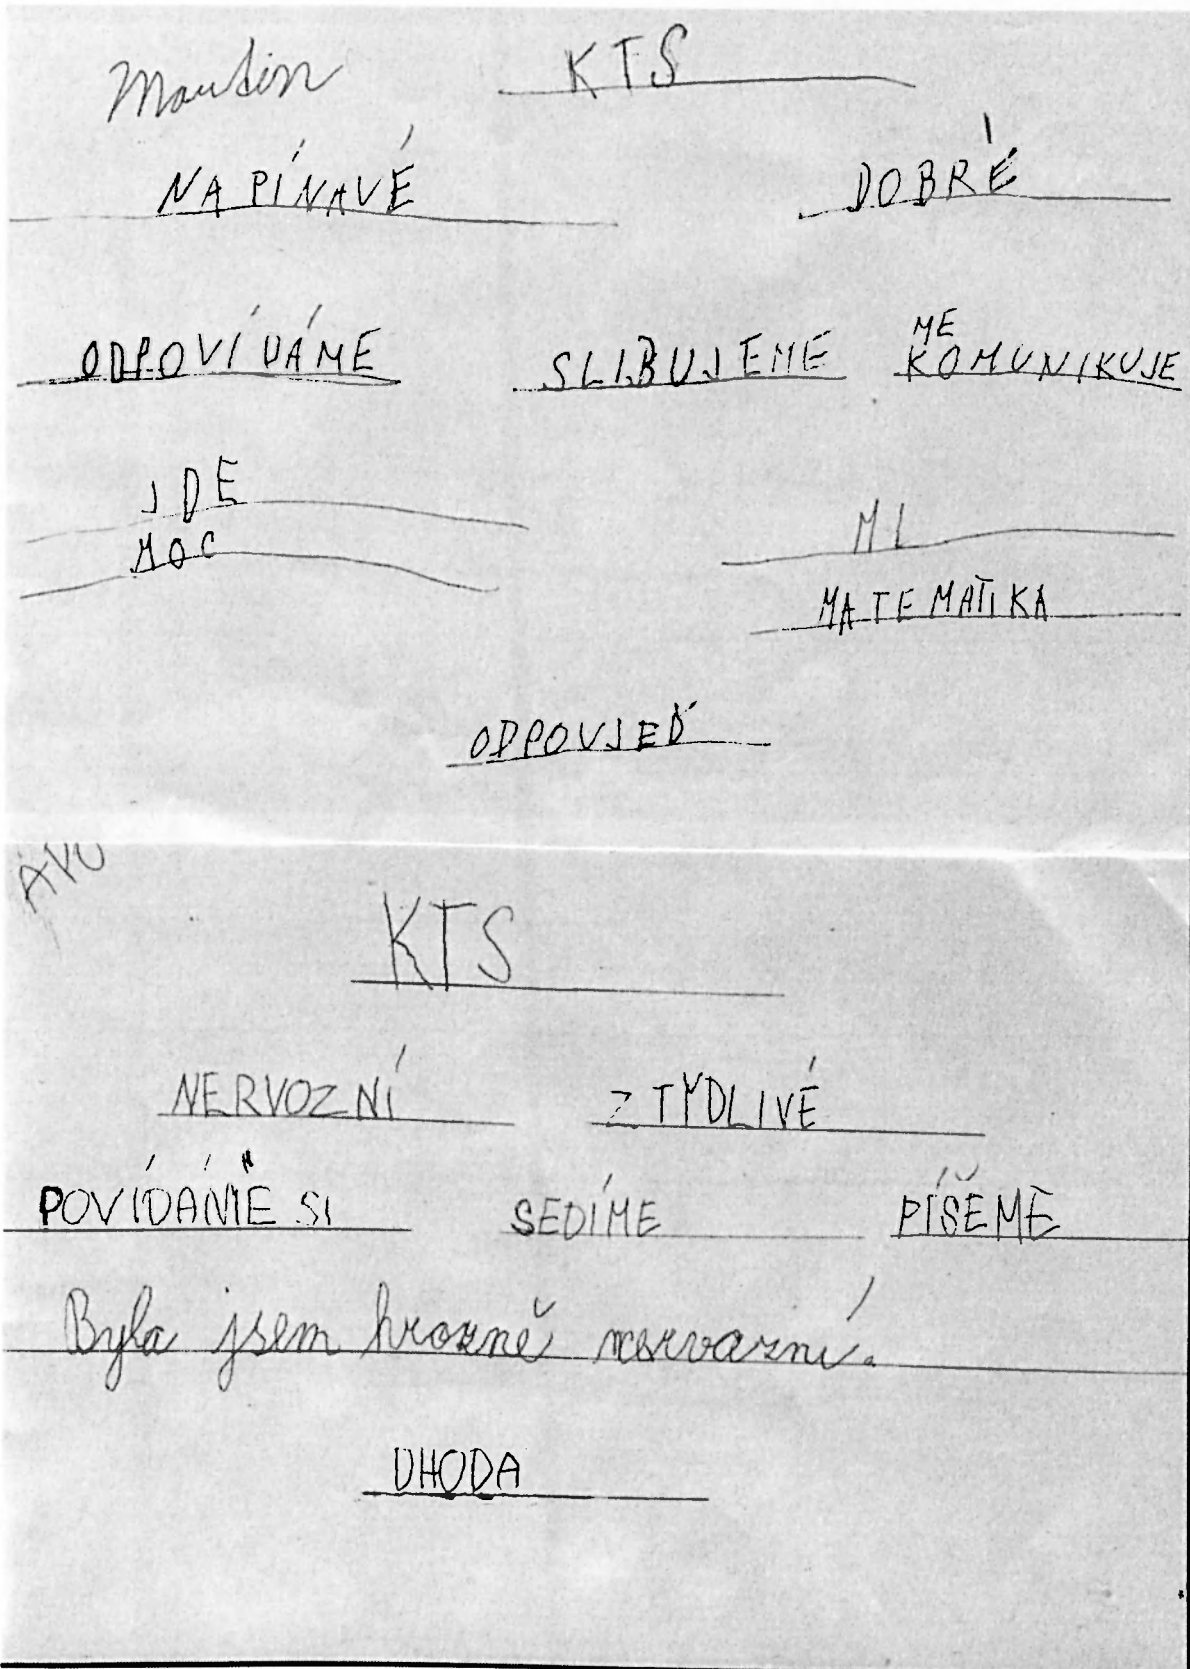 Martin KTS
NAPÍNAVÉ DOBRÉ
ODPOVÍDÁME SLIBUJEME KOMUNIKUJE
ME
JDE
MOC ML
MATEMATIKA
ODPOVJEĎ
KTS
NERVOZNÍ ZTYDLIVÉ
POVÍDÁME SI SEDÍME PÍŠEME
Byla jsem hrozně nervazní.
DHODA